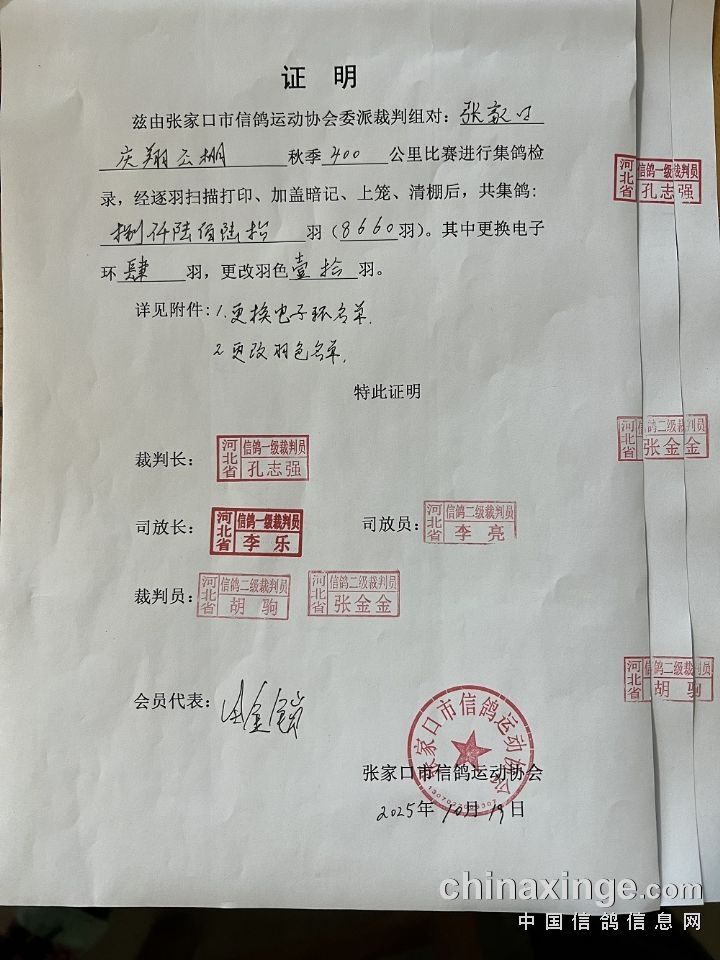 证 明
兹由张家口市信鸽运动协会委派裁判组对：张家口
庆翔公棚 秋季 400 公里比赛进行集鸽检
录，经逐羽扫描打印、加盖暗记、上笼、清棚后，共集鸽：
捌仟陆佰陆拾 羽（8660羽）。其中更换电子
环 肆 羽，更改羽色 壹拾 羽。
详见附件：1.更换电子环名单.
2.更改羽色名单.
特此证明
裁判长：
河北省
信鸽一级裁判员
孔志强
司放长：
河北省
信鸽一级裁判员
李乐
司放员：
河北省
信鸽二级裁判员
李亮
裁判员：
河北省
信鸽二级裁判员
胡驹
河北省
信鸽二级裁判员
张金金
会员代表：
张家口市信鸽运动协会
张家口市信鸽运动协会
2025年 10月 19日
河北省
信鸽一级裁判员
孔志强
河北省
信鸽二级裁判员
张金金
河北省
信鸽二级裁判员
胡驹
chinaxinge.com
中国信鸽信息网